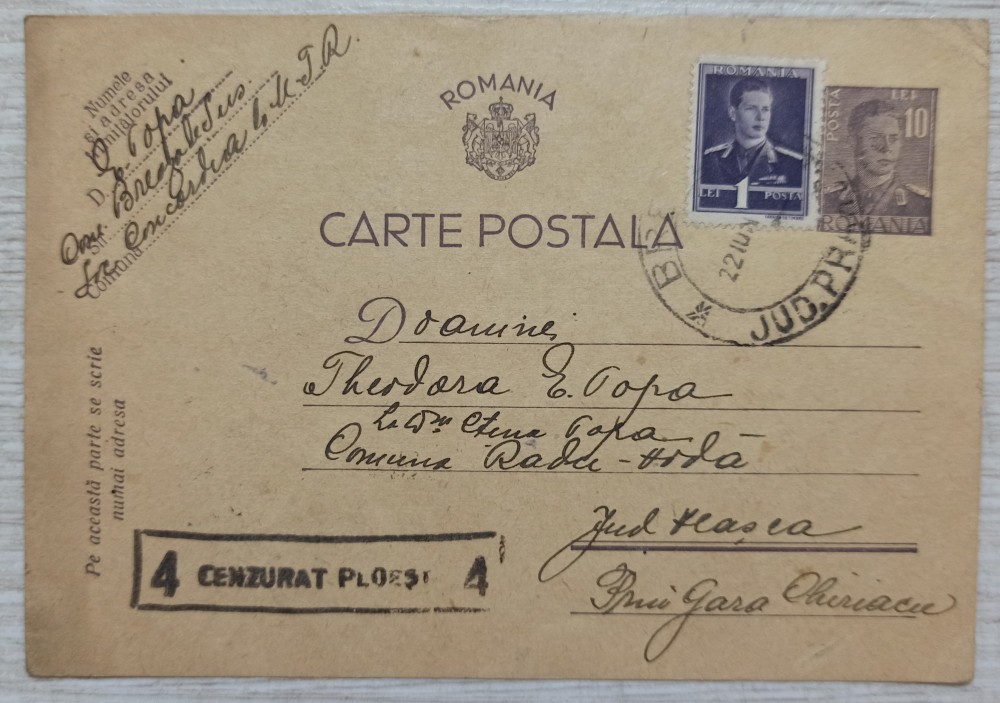 Numele
și adresa
trimițătorului
D. Popa
Str.
Concordia
Comuna
ROMANIA
CARTE POSTALA
ROMANIA
LEI 1 POSTA
POSTA LEI 10
ROMANIA
22 IUN
JUD. PR
Doamnei
Theodora E. Popa
La Dna Elena Popa
Comuna Radu-Vodă
Jud Vlașca
Prin Gara Chiriacu
Pe această parte se scrie
numai adresa
4 CENZURAT PLOEȘTI 4